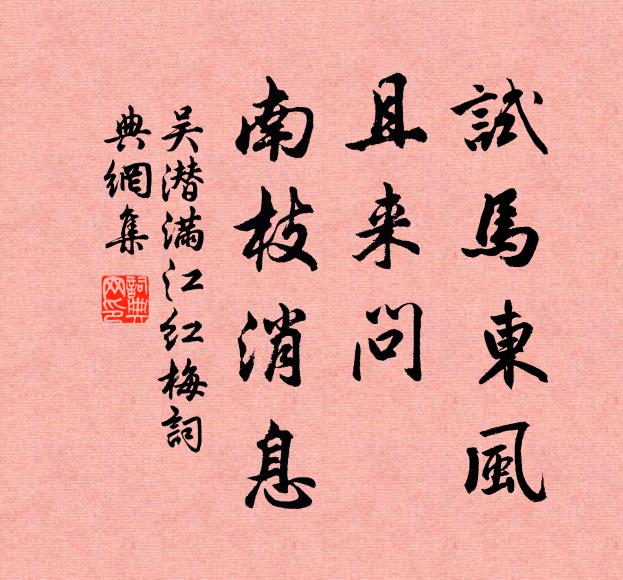 試馬東風
且来問
南枝消息
吴潜满江红梅詞
典網集
詞典網印